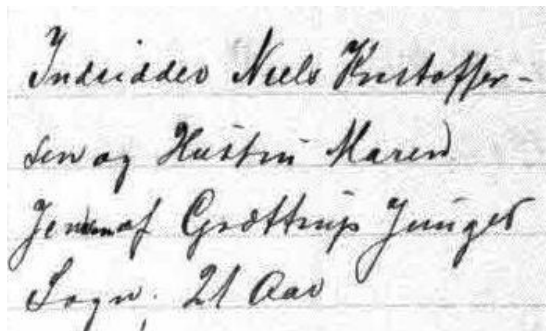 Indsidder Niels Kristoffer-
sen og Hustru Maren
Jensen af Grættrup Junget
Sogn. 21 Aar